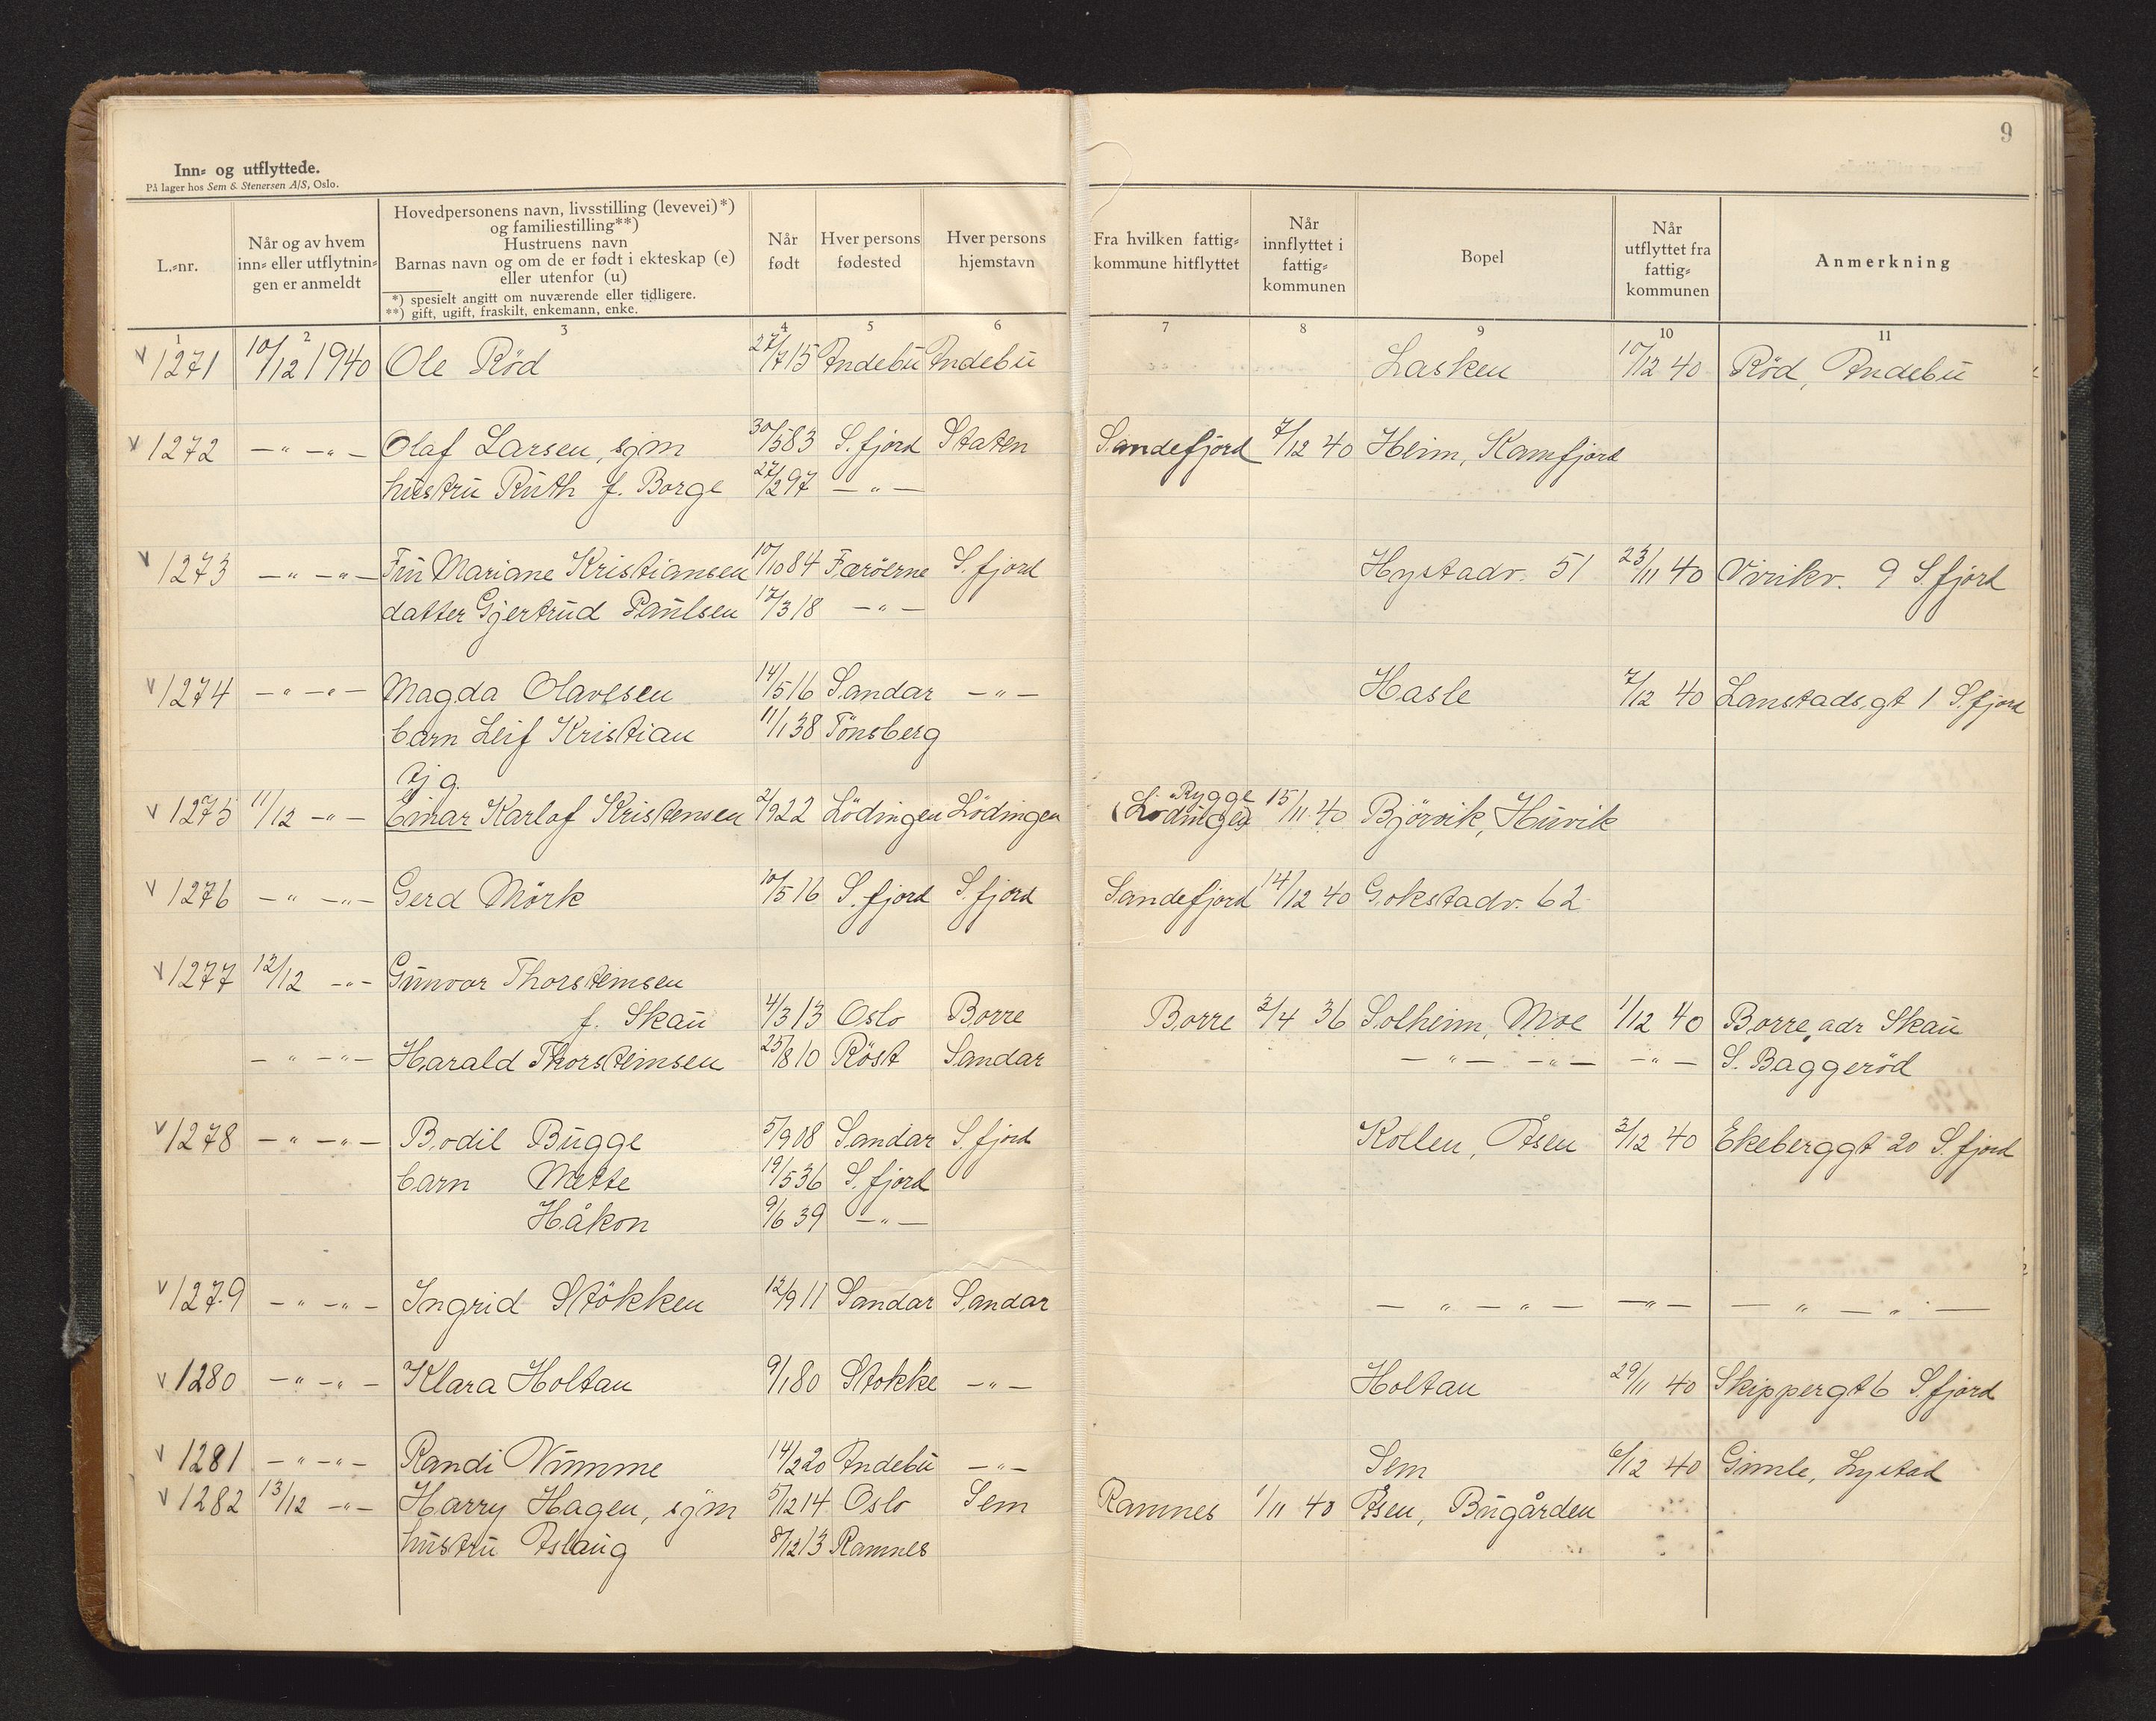 9
Inn- og utflyttede.
På lager hos Sem & Stenersen A/S, Oslo.
L.-nr.
Når og av hvem inn- eller utflytningen er anmeldt
Hovedpersonens navn, livsstilling (levevei)*)
og familiestilling**)
Hustruens navn
Barnas navn og om de er født i ekteskap (e)
eller utenfor (u)
*) spesielt angitt om nuværende eller tidligere.
**) gift, ugift, fraskilt, enkemann, enke.
Når født
Hver persons fødested
Hver persons hjemstavn
Fra hvilken fattig-kommune hitflyttet
Når innflyttet i fattig-kommunen
Bopel
Når utflyttet fra fattig-kommunen
Anmerkning
1 2 3 4 5 6 7 8 9 10 11
v 1271 10/12 1940 Ole Rød 27/7 15 Andebu Andebu Lasken 10/12 40 Rød, Andebu
v 1272 — " — " — Olaf Larsen, sjm 30/5 83 S.fjord Staten Sandefjord 7/12 40 Heim, Kamfjord
hustru Ruth f. Borge 27/2 97 — " —
v 1273 — " — " — Fru Mariane Kristiansen 10/10 84 Færöerne S.fjord Hystadv. 51 23/11 40 Virikv. 9 S.fjord
datter Gjertrud Paulsen 17/3 18 — " —
v 1274 — " — " — Magda Olavesen 14/5 16 Sandar — " — Hasle 7/12 40 Lanstadsgt 1 S.fjord
barn Leif Kristian 11/1 38 Tönsberg
tj g.
v 1275 11/12 — " — Einar Karlof Kristensen 2/9 22 Lödingen Lödingen (Lödingen) Rygge 15/11 40 Björvik, Huvik
v 1276 — " — " — Gerd Mörk 10/5 16 S.fjord S.fjord Sandefjord 14/12 40 Gokstadv. 62
v 1277 12/12 — " — Gunvor Thorsteinsen
f. Skau 4/3 13 Oslo Borre Borre 3/4 36 Solheim, Moe 1/12 40 Borre, adr Skau
— " — " — Harald Thorsteinsen 25/8 10 Röst Sandar — " — — " — — " — S. Baggeröd
v 1278 — " — " — Bodil Bugge 5/9 08 Sandar S.fjord Kollen, Åsen 3/12 40 Ekeberggt 20 S.fjord
barn Mette 19/5 36 S.fjord
Håkon 9/6 39 — " —
v 1279 — " — " — Ingrid Stökken 12/9 11 Sandar Sandar — " — " — — " — — " — " —
v 1280 — " — " — Klara Holtan 9/1 80 Stokke — " — Holtan 29/11 40 Skippergt 6 S.fjord
v 1281 — " — " — Randi Vimme 14/2 20 Andebu — " — Sem 6/12 40 Gimle, Lystad
v 1282 13/12 — " — Harry Hagen, sjm 5/12 14 Oslo Sem Ramnes 1/11 40 Åsen, Bugården
hustru Aslaug 8/12 13 Ramnes